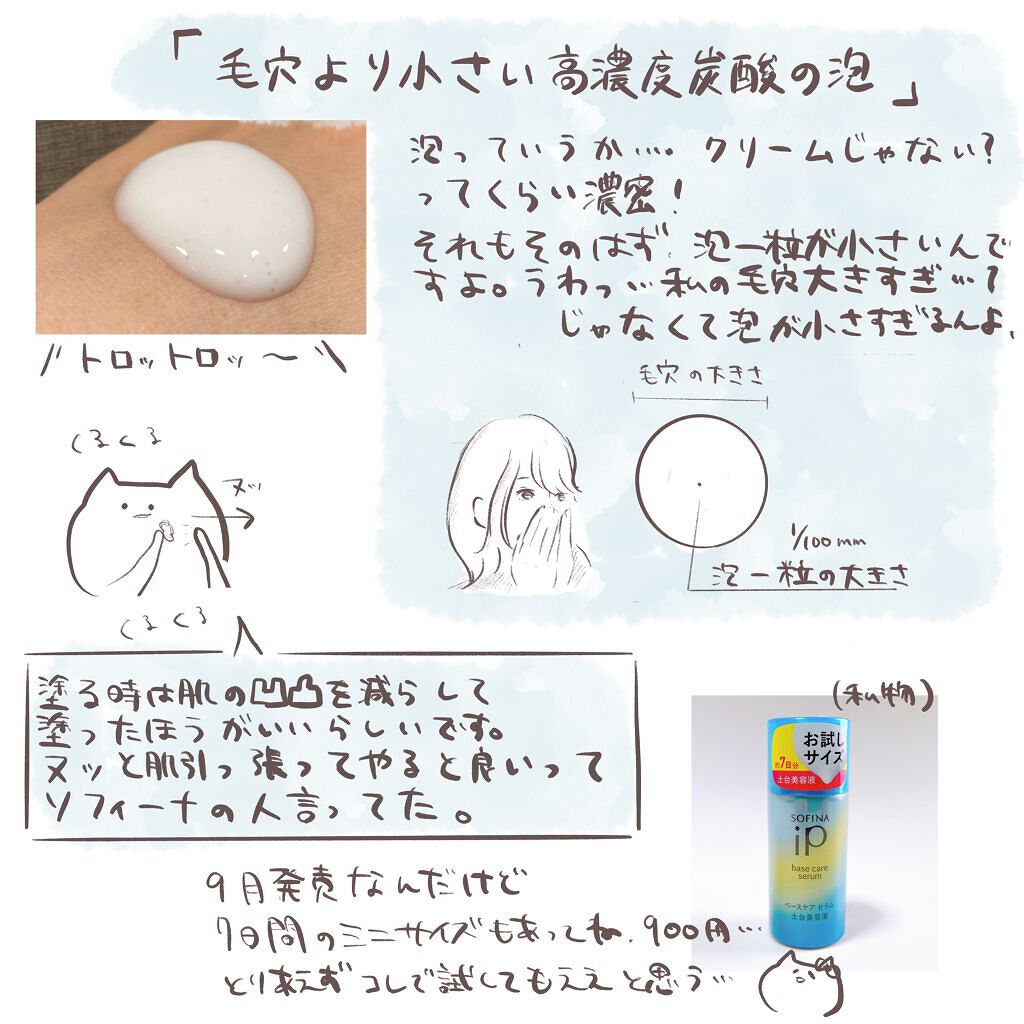 「毛穴より小さい高濃度炭酸の泡」
泡っていうか…。クリームじゃない?
ってくらい濃密!
それもそのはず、泡一粒が小さいんで
すよ。うわっ…私の毛穴大きすぎ…?
じゃなくて泡が小さすぎるんよ、
トロットロッ〜
毛穴の大きさ
くるくる
ヌッ
1/100mm
泡一粒の大きさ
くるくる
塗る時は肌の凹凸を減らして
塗ったほうがいいらしいです。
ヌッと肌引っ張ってやると良いって
ソフィーナの人言ってた。
(私物)
お試し
サイズ
約7日分
土台美容液
SOFINA
iP
base care
serum
ベースケア セラム
土台美容液
9月発売なんだけど
7日間のミニサイズもあってね、900円…
とりあえずコレで試してもええと思う…